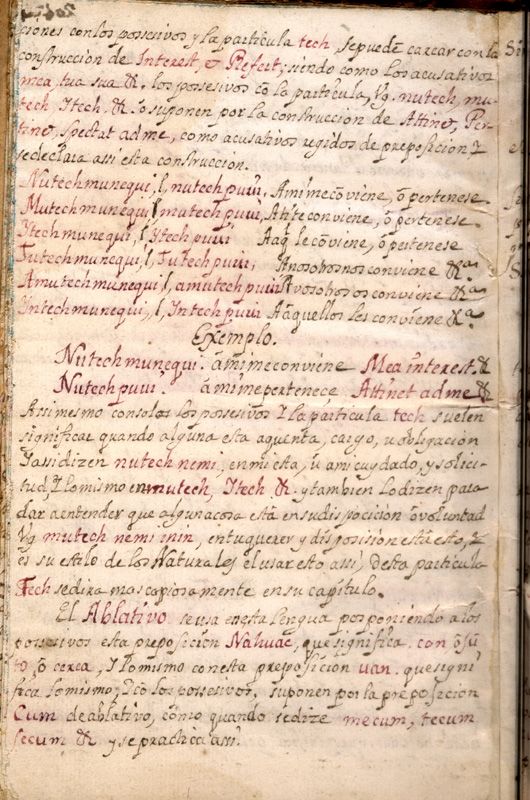 ciones con los possesivos y la particula tech, se puedẽ carear con la
construccion de Interest, & Refert; siendo como los acusativos
mea, tua sua &. los posesivos cõ la particula, Vg. nutech, mu-
tech, Itech. &. õ suponen por la construccion de Attinet, Per-
tinet, spectat ad me, como acusativos regidos de preposicion Y
se declara assi esta construccion.
Nutechmunequi, l, nutechpuui, A mi me cõviene, õ pertenese.
Mutechmunequi, l, mutechpuui, A ti te conviene, õ pertenese.
Itechmunequi, l, Ytechpuui A aql̃ le cõviene, õ pertenese
Tutechmunequi, l, Tutechpuui, A nosotros nos conviene &ª
Amutechmunequi, l, amutechpuui A vosotros os conviene &ª
Yntechmunequi, l, Yntechpuui A aquellos les conviene &ª
Exemplo.
Nutechmunequi. â mi me conviene Mea interest. &
Nutechpuui. â mi me pertenece Attinet ad me &
Assimesmo con solos los possesivos Y la particula tech suelen
significar quando alguna esta a quenta, cargo, u obligacion
Y assi dizen nutech nemi, en mi esta, û a mi cuydado, y solici-
tud, Y lo mismo en mutech, Itech &. y tambien lo dizen para
dar a entender que alguna cosa està en su disposicion õ voluntad
Vg mutech nemi inin, en tu querer y disposision està esto, y
es su estilo de los Naturales el usar esto assi, desta particula
Tech se dira mas copiosamente en su capitulo.
El Ablativo se usa en esta lengua posponiendo a los
possesivos esta preposicion Nahuac, que significa. con õ jũ
to, õ cerca, Y lo mismo con esta preposicion uan. que signi
fica lo mismo; Y cõ los possesivos, suponen por la preposicion
Cum de ablativo, cõmo quando se dize mecum, tecum
secum &. y se practica assi.